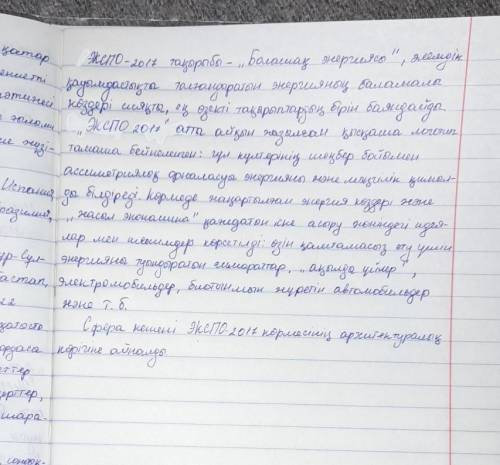 цаттар
ЭКСПО-2017 тақырыбы - „Болашақ энергиясы", әлемдік
қауымдастықта толғандыратын энергияның баламалы
көздері сияқты, ең өзекті тақырыптардың бірін бағалайды.
„ЭКСПО 2017" атты айқын жазылған қысқаша логотип
тамаша бейнеленген: гүл күлтерінің шеңбер бойымен
ассиметриялық орналасуы энергияны және мәңгілік цикл-
ды білдіреді. Көрмеде жаңартылған энергия көздері және
„жасыл экономика" қағидатын іске асыру жөніндегі идея-
лар мен шешімдер көрсетілді: өзін қамтамасыз ету үшін
энергияны тудыратын ғимараттар, „ақылды үйлер",
электромобильдер, биоотынмен жүретін автомобильдер
және т. б.
Сфера кешені ЭКСПО 2017 көрмесінің архитектуралық
көрігіне айналды.
Испания,
ур-Сул-
бастап,